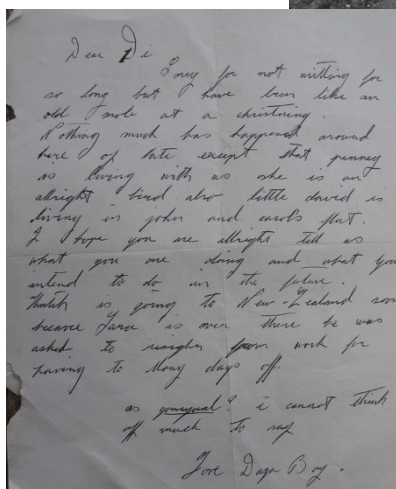 Dear Di
Sorry for not writting for
so long but I have been like an
old mole at a christning.
Nothing much has happened around
here of late except that penney
is living with us she is an
allright bird also little david is
living in john and carols flat.
I hope you are allright tell us
what you are doing and what you
intend to do in the future.
is going to New-Zealand soon
because is over there he was
asked to from work for
having to Many days off.
as ? i cannot think
off much to say
Love Boy.